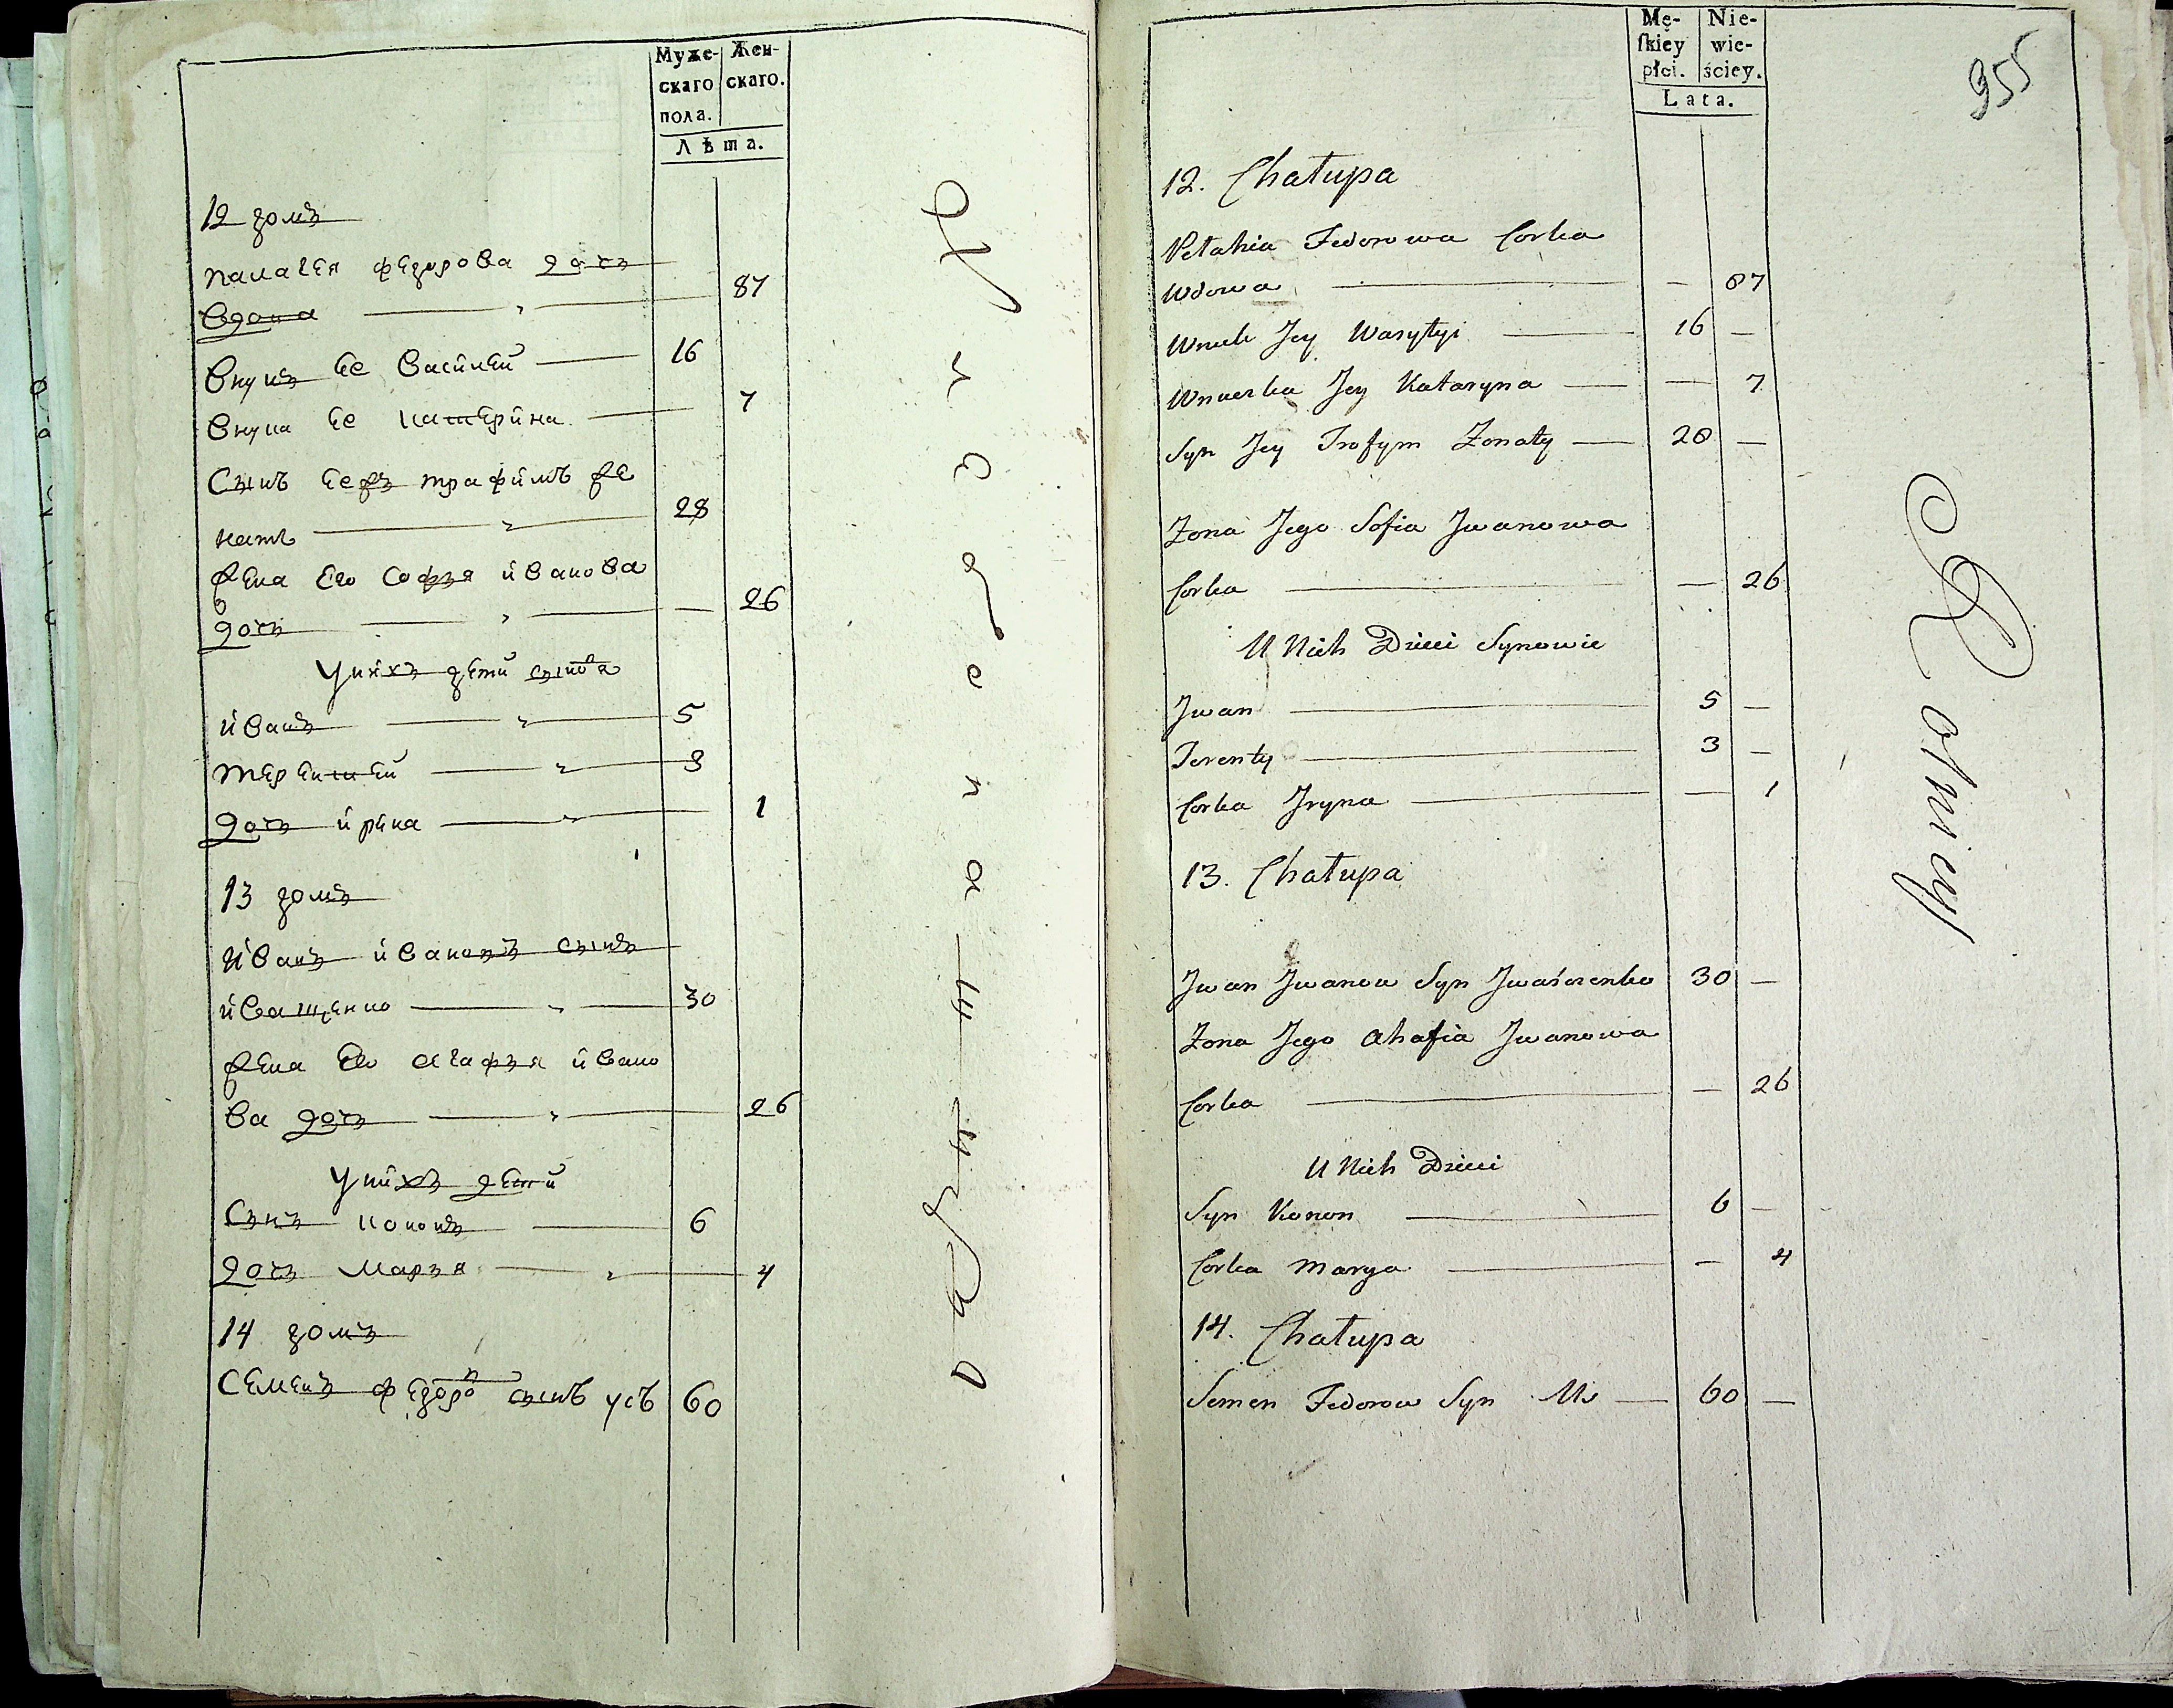 Муже- Жен-
скаго скаго.
пола.
Лѣта.
12 домъ
палагея федорова дочь
вдова 87
внукъ ее василей 16
внука ее катерина 7
Сынъ ееже трафимъ же
натъ 28
жена его софья иванова
дочь 26
Унихъ дети сынова
иванъ 5
терентей 3
дочь ирина 1
13 домъ
Иванъ ивановъ сынъ
иващенко 30
жена его агафья ивано
ва дочь 26
Унихъ дети
Сынъ кононъ 6
дочь Марья 4
14 домъ
Семенъ федоровъ сынъ усъ 60
Mę- Nie-
ſkiey wie-
płci. ściey.
Lata.
955
12. Chałupa
Pełahia Fedorowa Corka
Wdowa — 87
Wnuk Jey Wasylyi 16 —
Wnuczka Jey Kataryna — 7
Syn Jey Trofym Zonaty 28 —
Zona Jego Sofia Jwanowa
Corka — 26
U Nich Dzieci Synowie
Jwan 5 —
Terenty 3 —
Corka Jryna — 1
13. Chałupa
Jwan Jwanow Syn Jwaśczenko 30 —
Zona Jego Ahafia Jwanowa
Corka — 26
U Nich Dzieci
Syn Konon 6 —
Corka Marya — 4
14. Chałupa
Semen Fedorow Syn Us 60 —
Rotnicy